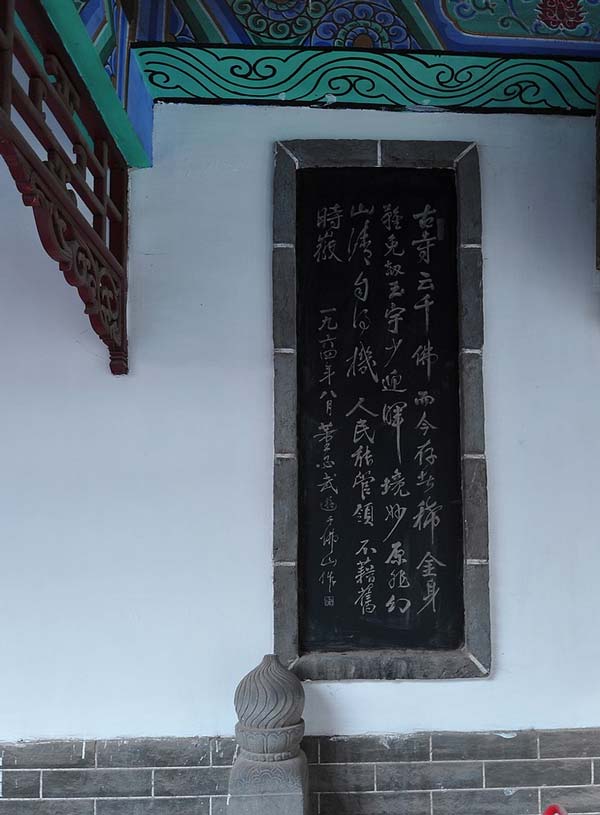 古寺云千佛而今存者稀金身
難免劫玉宇少迎暉境妙原非幻
山清自得機人民能管領不藉舊
時 一九六四年八月董必武遊千佛山作